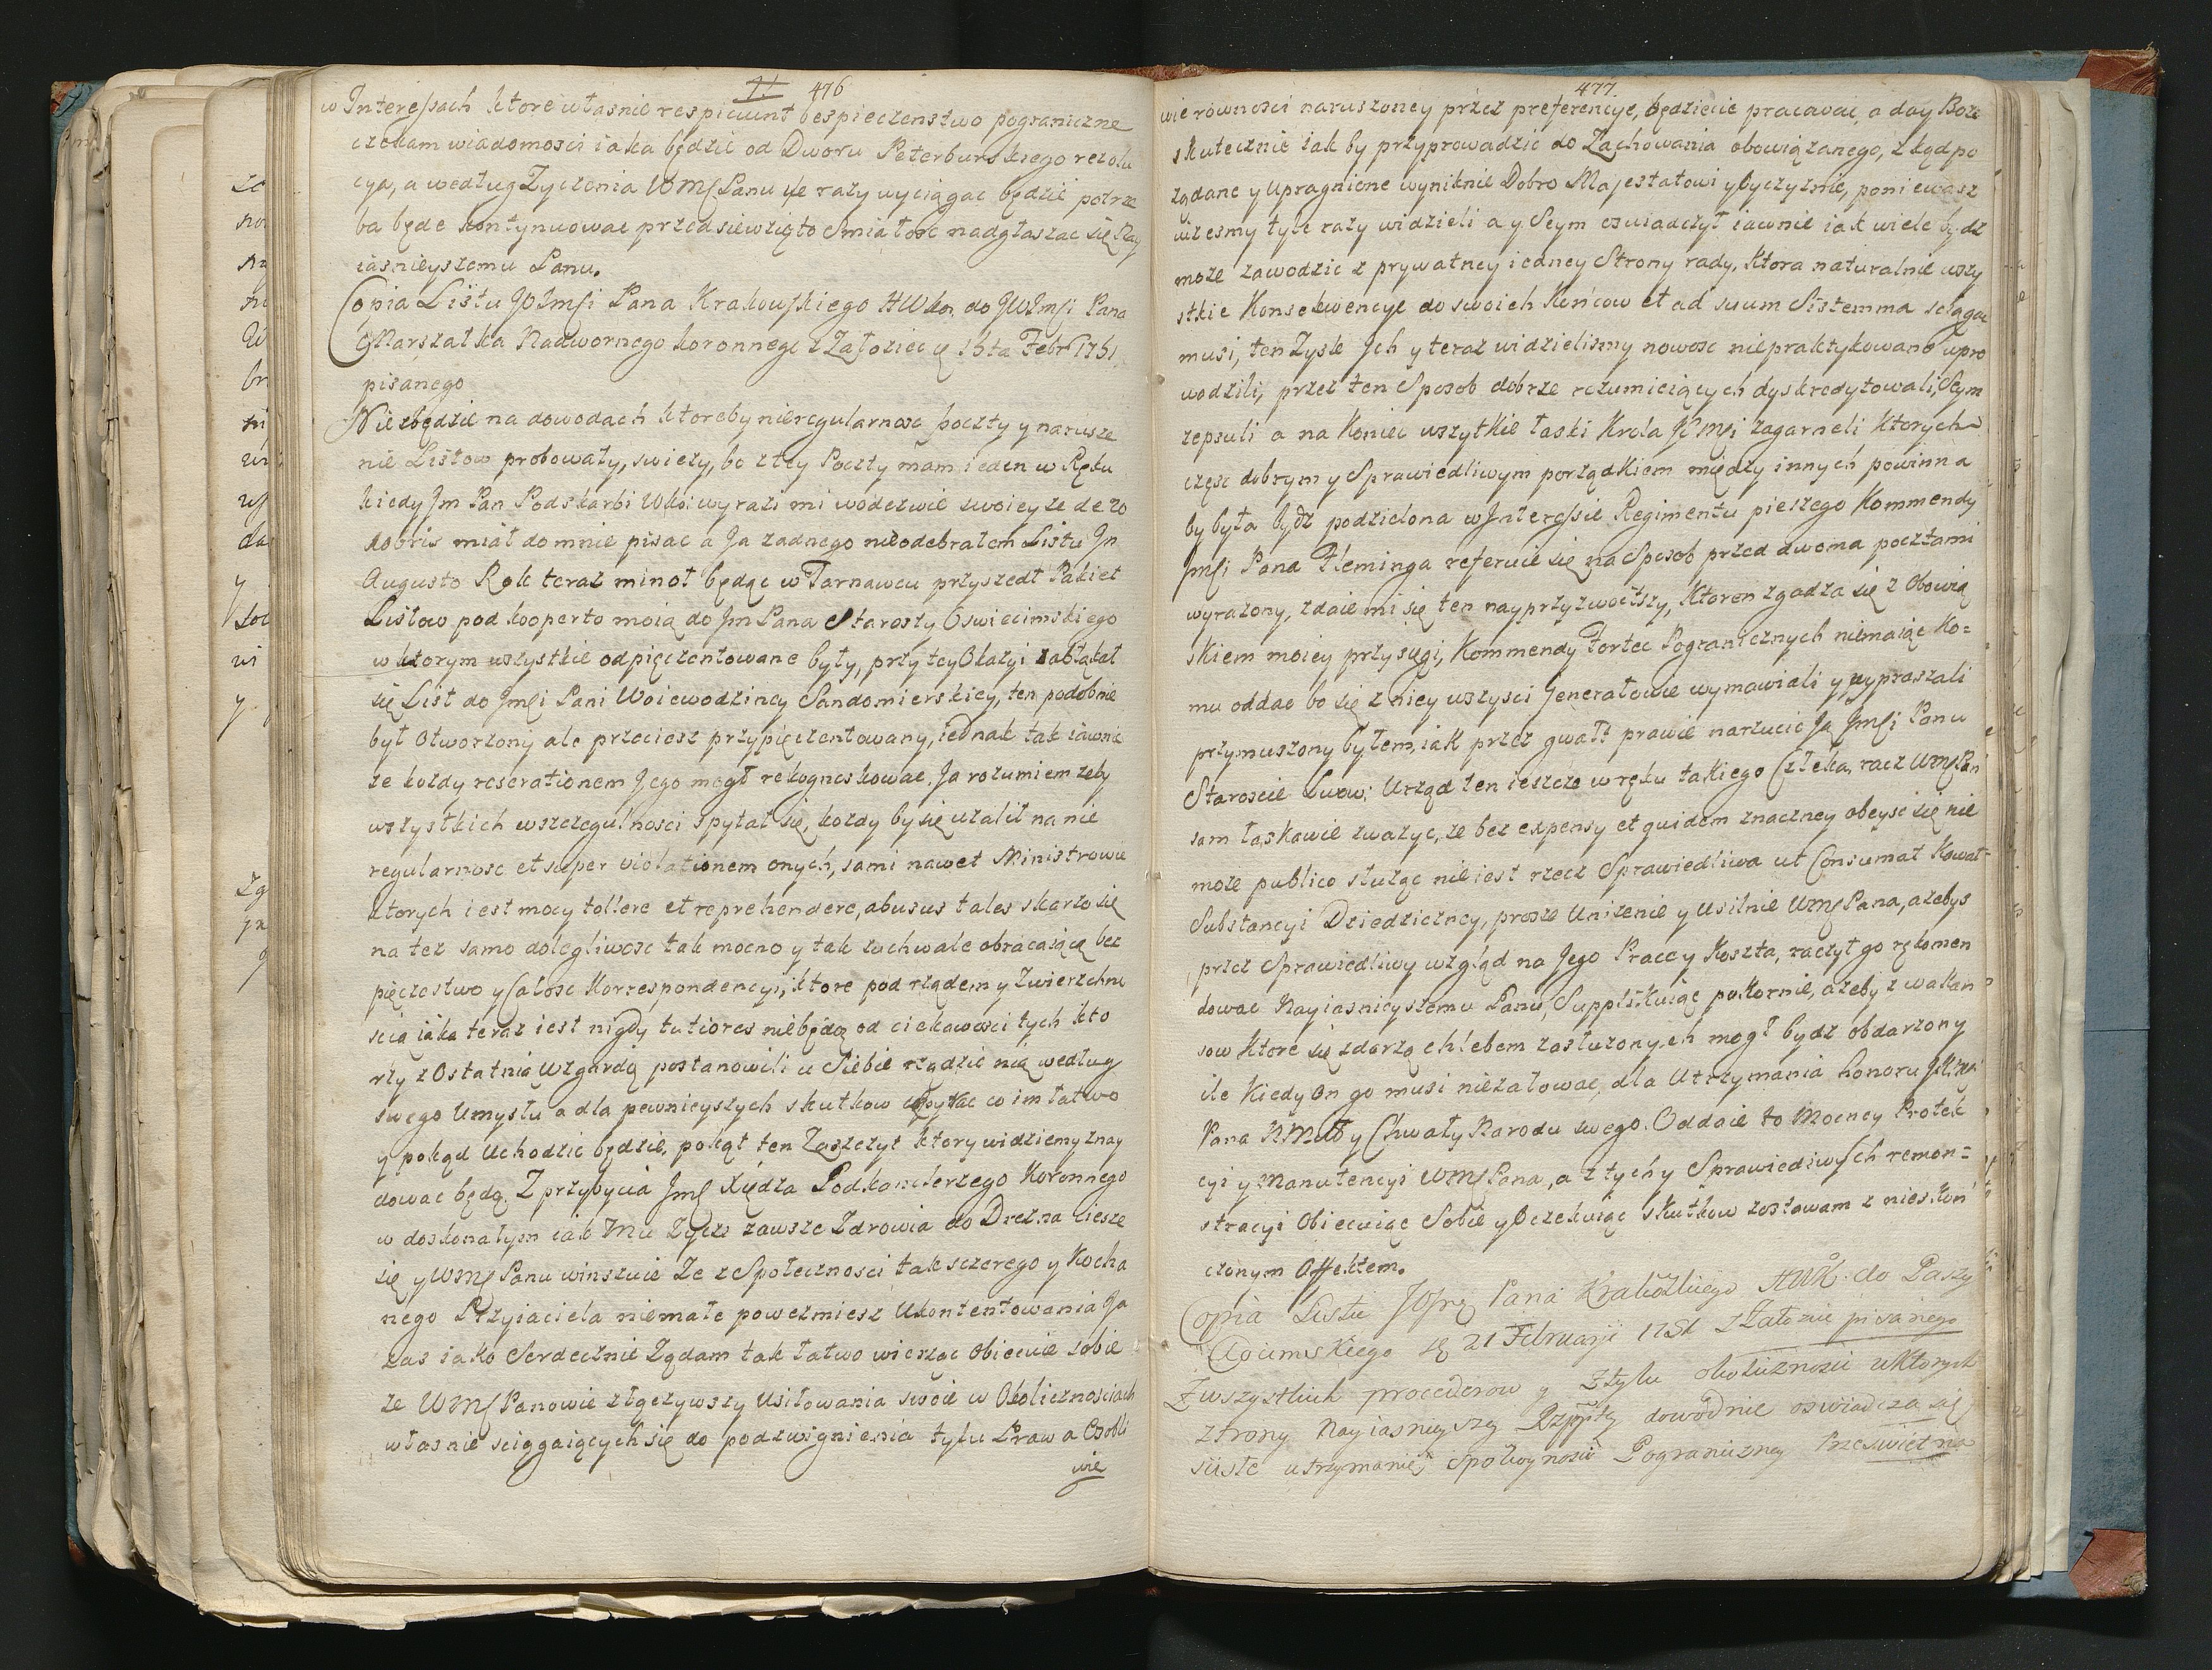 476
w Interessach ktore własnie respiciunt bespieczenstwo pograniczne
czekam wiadomosci iaka będzie od Dworu Peterburskiego rezolu
cya, a według Zyczenia WMć Panu ile razy wyciągac będzie potrze
ba będe kontynuowac przedsiewzięto smiałosc nadgłaszac się Nay
iasnieyszemu Panu.
Copia Listu JWJmći Pana Krakowskiego HWKo. do JWJmći Pana
Marszałka Nadwornego koronnego z Załoziec d. 15ta Febr 1751
pisanego
Nie zbędzie na dowodach ktoreby nieregularnosc poczty y narusze
nie Listow probowały, swiezy, bo z tey Poczty mam ieden w Ręku
kiedy Jm Pan Podskarbi WKo wyrazi mi wodezwie swoiey ze de 20
kobris miał do mnie pisac a Ja zadnego nieodebrałem Listu Jn
Augusto Rok teraz minoł będąc w Tarnawcu przyszedł Pakiet
Listow pod kooperto moią do Jm Pana Starosty Oswiecimskiego
w ktorym wszystkie odpięczentowane były, przy tey Okazyi zabłąkał
się List do Jmći Pani Woiewodziney Sandomierskiey, ten podobnie
był Otworzony ale przeciesz przypięczentowany, iednak tak iawnie
ze kozdy reserationem Jego mogł rekognoskowac. Ja rozumiem zeby
wszystkich wszczegulnosci spytał się, kozdy by się uzalił na nie
regularnosc et super violationem onych, sami nawet Ministrowie
ktorych iest mocy tollere et reprehendere, abusus tales skarzo się
na tez samo dolegliwosc tak mocno y tak zuchwale obracaiącą bez
pięczestwo y Całosc Korrespondencyi, ktore pod rządem y Zwierzchno
scią iaka teraz iest nigdy tutiores niebędą od ciekawosci tych kto
rzy z Ostatnią Wzgardą postanowili u Siebie rządzic nią według
swego Umysłu a dla pewnieyszych skutkow co im łatwo
y pokąd Uchodzic będzie, pokąt ten Zaszczyt ktory widziemy znay
dowac będą. Z przybycia Jmć Xiędza Podkanclerzego Koronnego
w doskonałym iak Mu Zycze zawsze Zdrowia do Drezna ciesze
się y WMć Panu winszuie Ze z Społecznosci tak sczerego y Kocha
nego Przyiaciela niemałe powezmiesz Ukontentowania Ja
zas iako Serdecznie Ządam tak łatwo wierząc obiecuie sobie
ze WMć Panowie złączywszy Usiłowania swoie w Okolicznosciach
własnie sciągaiących się do podzwignienia tylu Praw a Osobli
wie
477.
wie równosci naruszoney przez preferencye, będziecie pracowac, a day Boze
skutecznie iak by przyprowadzic do Zachowania obowiązanego, z kąd po
ządane y Upragnione wyniknie Dobro Majestatowi y Oyczyznie, poniewasz
wiesmy tyle razy widzieli a y Seym oswiadczył iawnie iak wiele bydz
moze zawodzic z prywatney iedney Strony rady, ktora naturalnie wszy
stkie Konsekwencye do swoich Końcow et ad suum Sistemma sciągac
musi, ten Zysk Jch y teraz widzielismy nowosc niepraktykowano wpro
wodzili, przez ten Sposob dobrze rozumieiących dyskredytowali, Seym
zepsuli a na Koniec wszytkie łaski Krola JMći zagarneli Ktorych
częsc dobrym y Sprawiedliwym porządkiem między innych powinna
by była bydz podzielona w Jnteressie Regimentu pieszego Kommendy
Jmći Pana Fleminga referuie się na Sposob przed dwoma pocztami
wyrazony, zdaie mi się ten nayprzyzwoitszy, Ktoren zgadza się z Obowią
skiem moiey przysięgi, Kommendy Fortec Pogranicznych niemaiąc Ko=
mu oddac bo się z niey wszysci Jenerałowie wymawiali y wypraszali
przymuszony byłem, iak przez gwałt prawie narzucic Ja Jmći Panu
Staroscie Lwow: Urząd ten ieszcze w ręku takiego Człeka, racz WMćPan
sam łaskawie zwazyc, ze bez expensy et quidem znaczney obeysc się nie
moze publico słuząc nie iest rzecz Sprawiedliwa ut Consumat Kował=
Substancyi Dziedziczney, prosze Unizenie y Usilnie WMć Pana, azebys
przez Sprawiedliwy wzgląd na Jego Prace y Koszta, raczył go rekomen
dowac Nayiasnieyszemu Panu, Supplikuiąc pokornie, azeby z wakan
sow Ktore się zdarzą chlebem zasłuzonych mogł bydz obdarzony
ile Kiedy on go musi niezałowac, dla Utrzymania honoru
Pana NMo y Chwały Narodu swego. Oddaie to Mocney Protek
cyi y Manutencyi WMć Pana, a z tych y Sprawiedliwych remon=
stracyi Obiecuiąc Sobie y Oczekuiąc skutkow zostawam z nieskon
czonym Affektem.
Copia Listu Pana Krakowskiego HWK. do Paszy
Chocimskiego d. 21 Februarii 1751 z Załoziec pisanego
Z wszystkich procederow y z tylu okolicznosci w Ktorych
z strony Nayiasnieyszey Rzpptey dowodnie oswiadcza się
scisłe utrzymanie spokoynosci Pograniczney Przeswietna